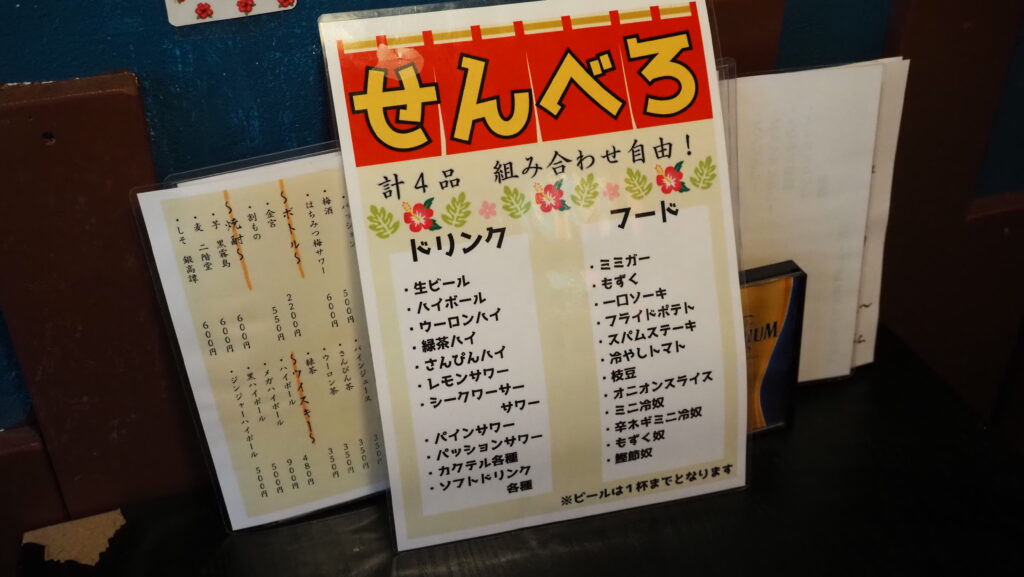 せんべろ
計4品 組み合わせ自由！
ドリンク
・生ビール
・ハイボール
・ウーロンハイ
・緑茶ハイ
・さんぴんハイ
・レモンサワー
・シークワーサー
サワー
・パインサワー
・パッションサワー
・カクテル各種
・ソフトドリンク
各種
フード
・ミミガー
・もずく
・一口ソーキ
・フライドポテト
・スパムステーキ
・冷やしトマト
・枝豆
・オニオンスライス
・ミニ冷奴
・辛ネギミニ冷奴
・もずく奴
・鰹節奴
※ビールは1杯までとなります
・はちみつ梅サワー 600円
・梅酒 500円
～ボトル～
・金宮 2200円
・割もの 550円
～焼酎～
・芋 黒霧島 600円
・麦 二階堂 600円
・しそ 鍛高譚 600円
・パインジュース 350円
・さんぴん茶 350円
・ウーロン茶 350円
・緑茶 350円
～ウイスキー～
・ハイボール 480円
・メガハイボール 900円
・黒ハイボール 500円
・ジンジャーハイボール 500円